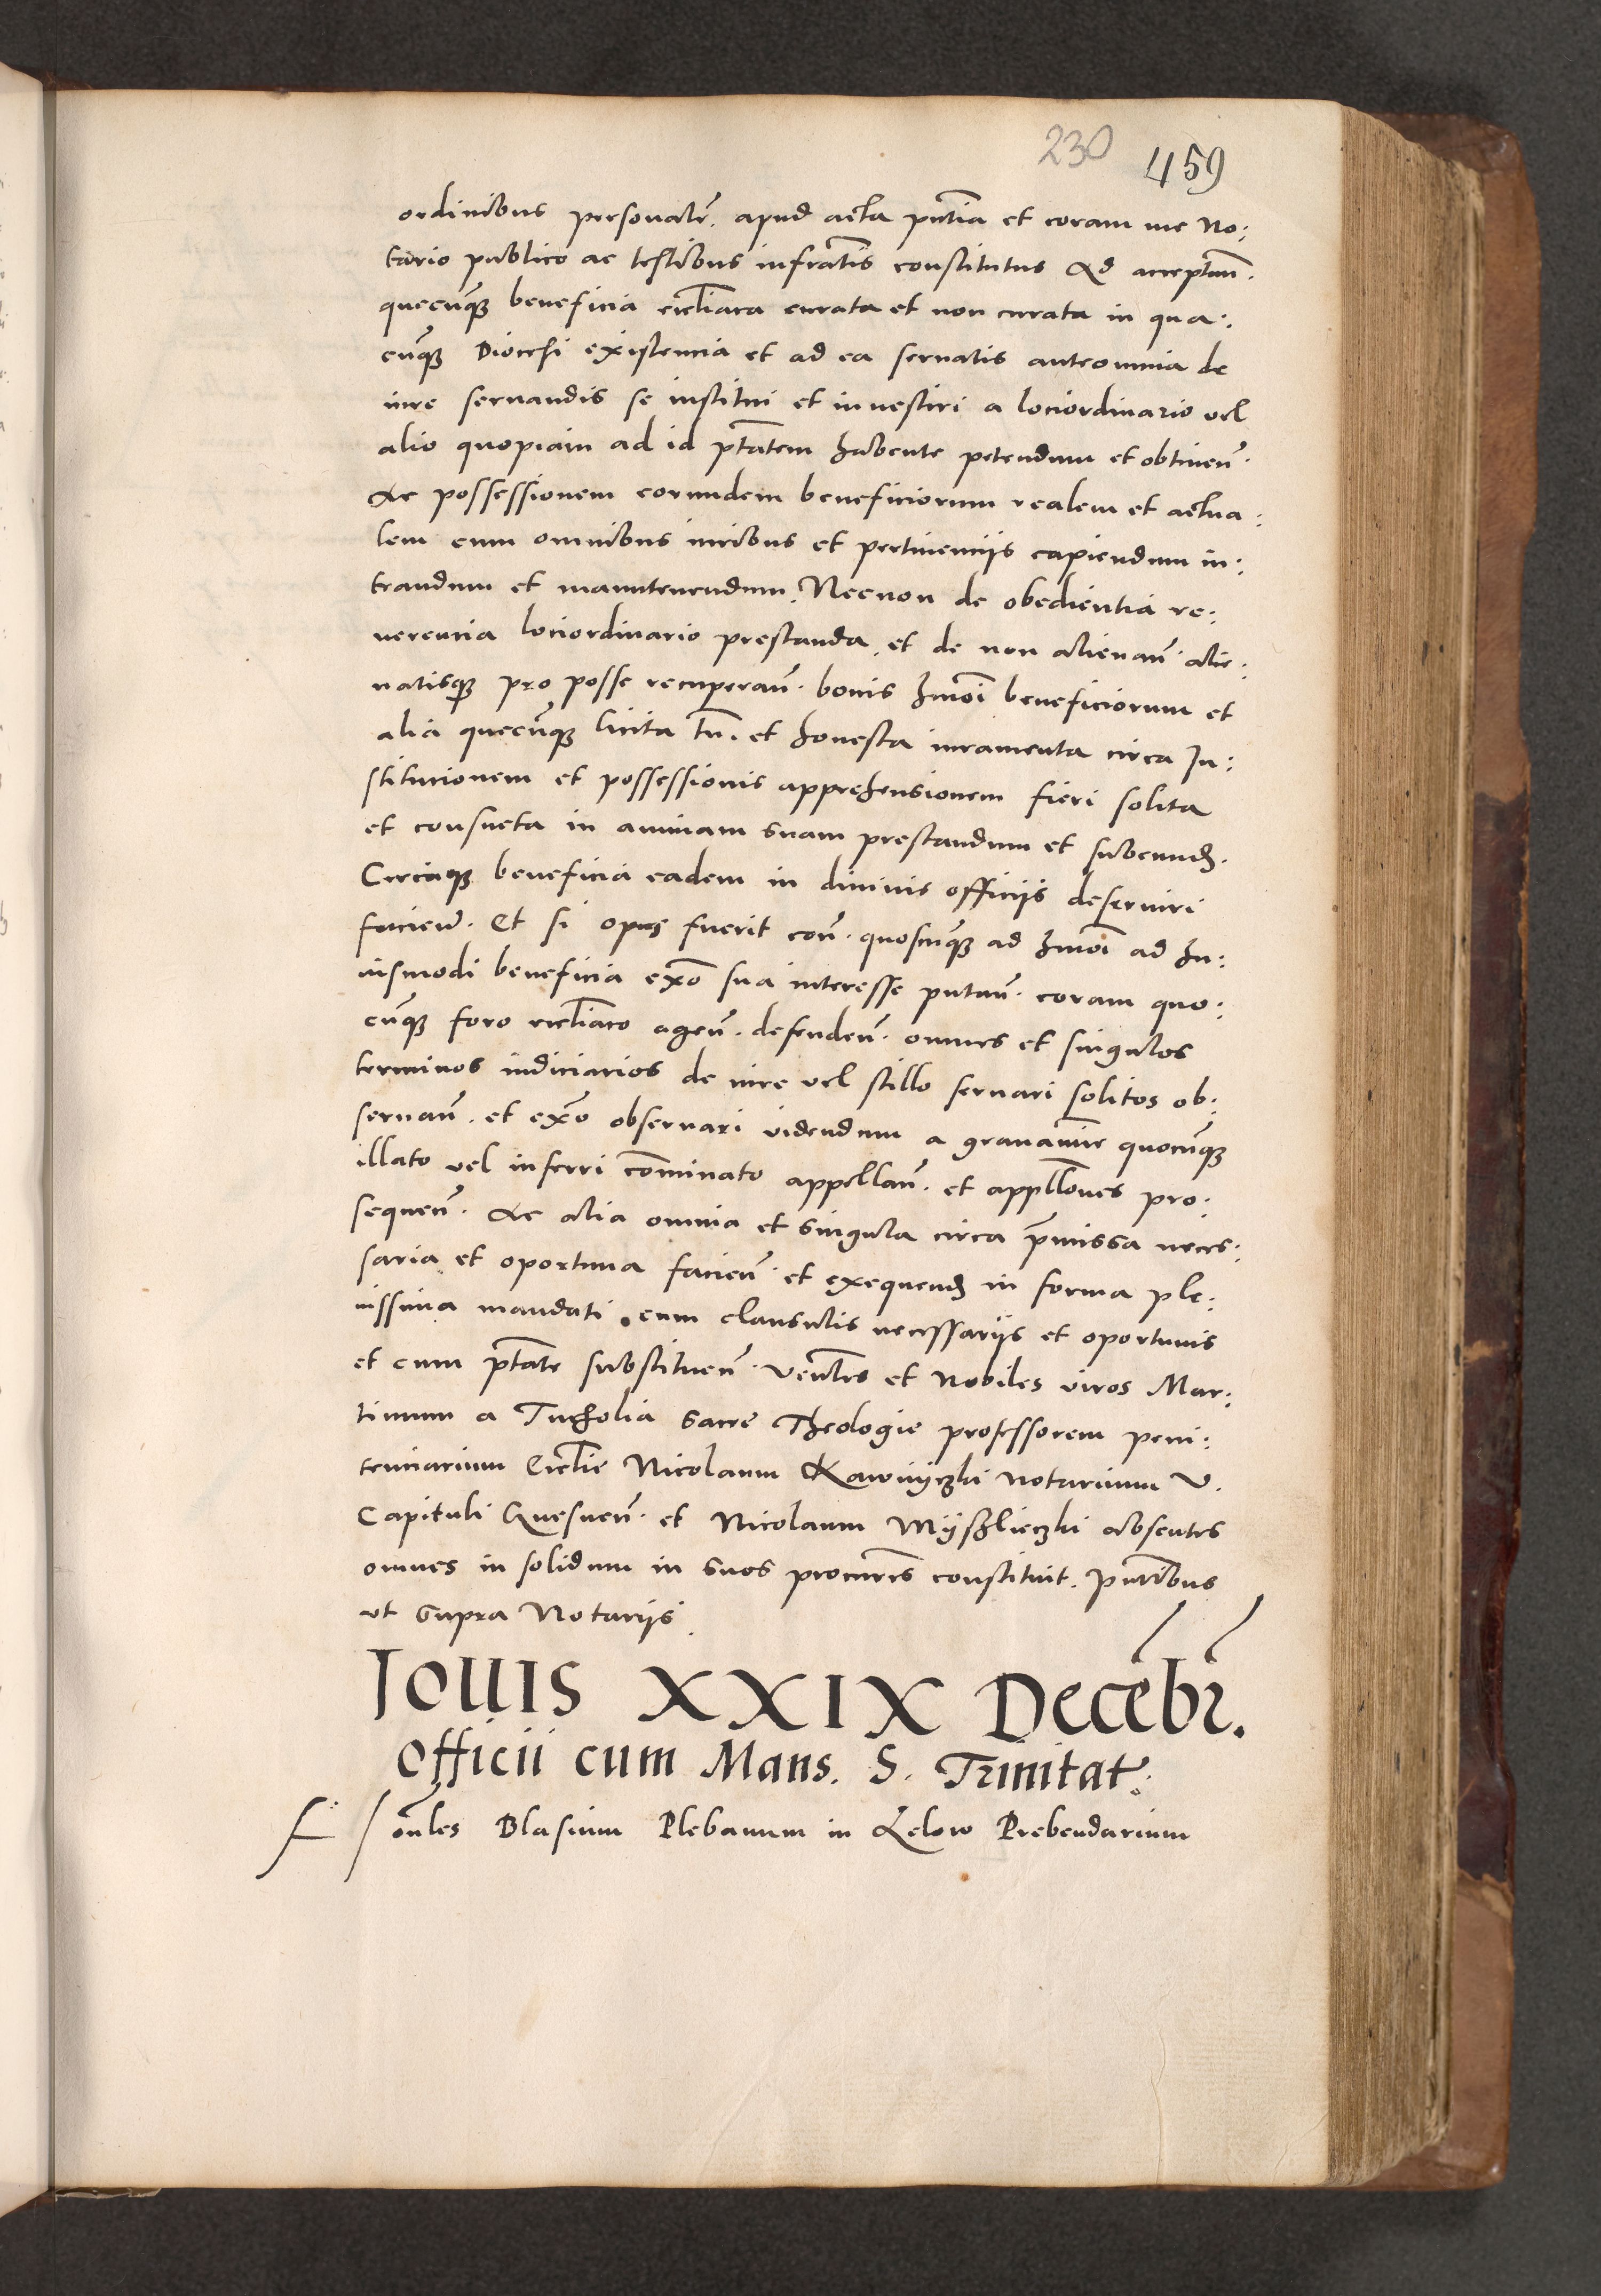 230 459
ordinibus personalr̃. apud acta pñtia et coram me No:
tario publico ac testibus infrãtis constitutus Ad acceptañ.
quecũqʒ beneficia ecclĩaca curata et non curata in qua:
cũqʒ Diocesi existencia et ad ea seruatis anteomnia de
iure seruandis se institui et inuestiri a lociordinario vel
alio quopiam ad id ptãtem habente petendum et obtineñ.
Ac possessionem eorundem beneficiorum realem et actua:
lem cum omnibus iuribus et pertinenciis capiendum in:
trandum et manutenendum. Necnon de obedientia re:
uerencia lociordinario prestanda. et de non alienañ. alie:
natisqʒ pro posse recuperañ. bonis hmõi beneficiorum et
alia quecũqʒ licita tñ. et honesta iuramenta circa In:
stitucionem et possessionis apprehensionem fieri solita
et consueta in animam suam prestandum et subeund.
Circaqʒ beneficia eadem in diuinis officijs deseruiri
facieñ. Et si opus fuerit coñ. quoscũqʒ ad hmõi ad hu:
iusmodi beneficia exõ sua interesse putañ. coram quo:
cũqʒ foro ecclĩaco ageñ. defendeñ. omnes et singulos
terminos iudiciarios de iure vel stillo seruari solitos ob:
seruañ. et exõ obseruari videndum a grauamĩe quocũqʒ
illato vel inferri cõminato appellañ. et appllões pro:
sequeñ. Ac alia omnia et singula circa p̃missa neces:
saria et oportuna facieñ. et exequend in forma ple:
nissima mandati. cum clausulis necessarijs et oportunis
et cum ptãte substitueñ. veñles et Nobiles viros Mar:
tinum a Tucholia sacre Theologie professorem peni:
tenciarium Ecclĩe Nicolaum Kawiyeczki notarium V.
Capituli Gnesneñ. et Nicolaum Mÿszlieczki absentes
omnes in solidum in suos procurẽs constituit. pñtibus
vt supra Notarijs.
Iouis XXIX Decẽbr̃.
Officii cum Mans. S. Trinitat.
oñles Blasium Plebanum in Lelow Prebendarium